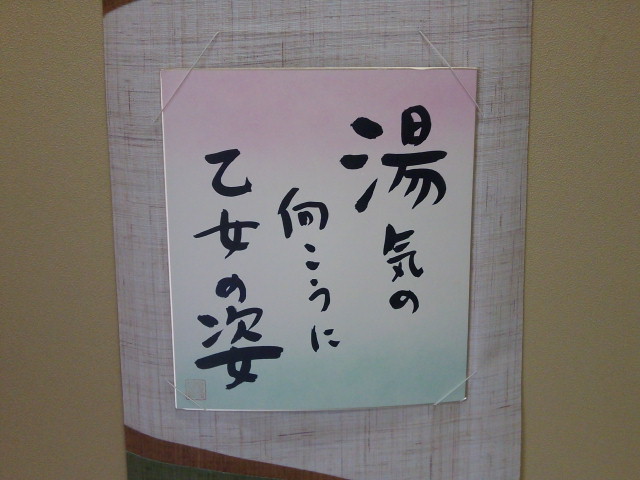 湯気の
向こうに
乙女の姿